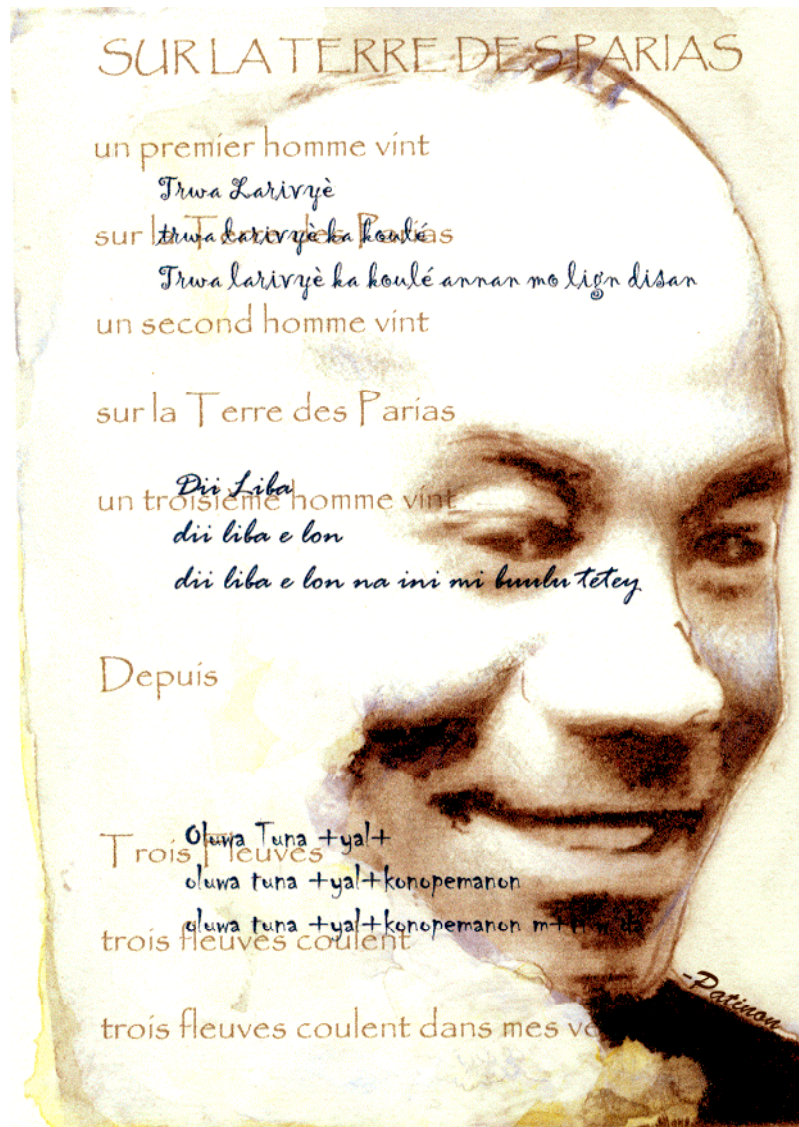 SUR LA TERRE DES PARIAS
un premier homme vint
Trwa Larivyè
sur la Terre des Parias
trwa larivyè ka koulé
Trwa larivyè ka koulé annan mo lign disan
un second homme vint
sur la Terre des Parias
Dii Liba
un troisième homme vint
dii liba e lon
dii liba e lon na ini mi buulu tetey
Depuis
Oluwa Tuna +yal+
Trois Fleuves
oluwa tuna +yal+konopemanon
oluwa tuna +yal+konopemanon
trois fleuves coulent
-Patinon
trois fleuves coulent dans mes